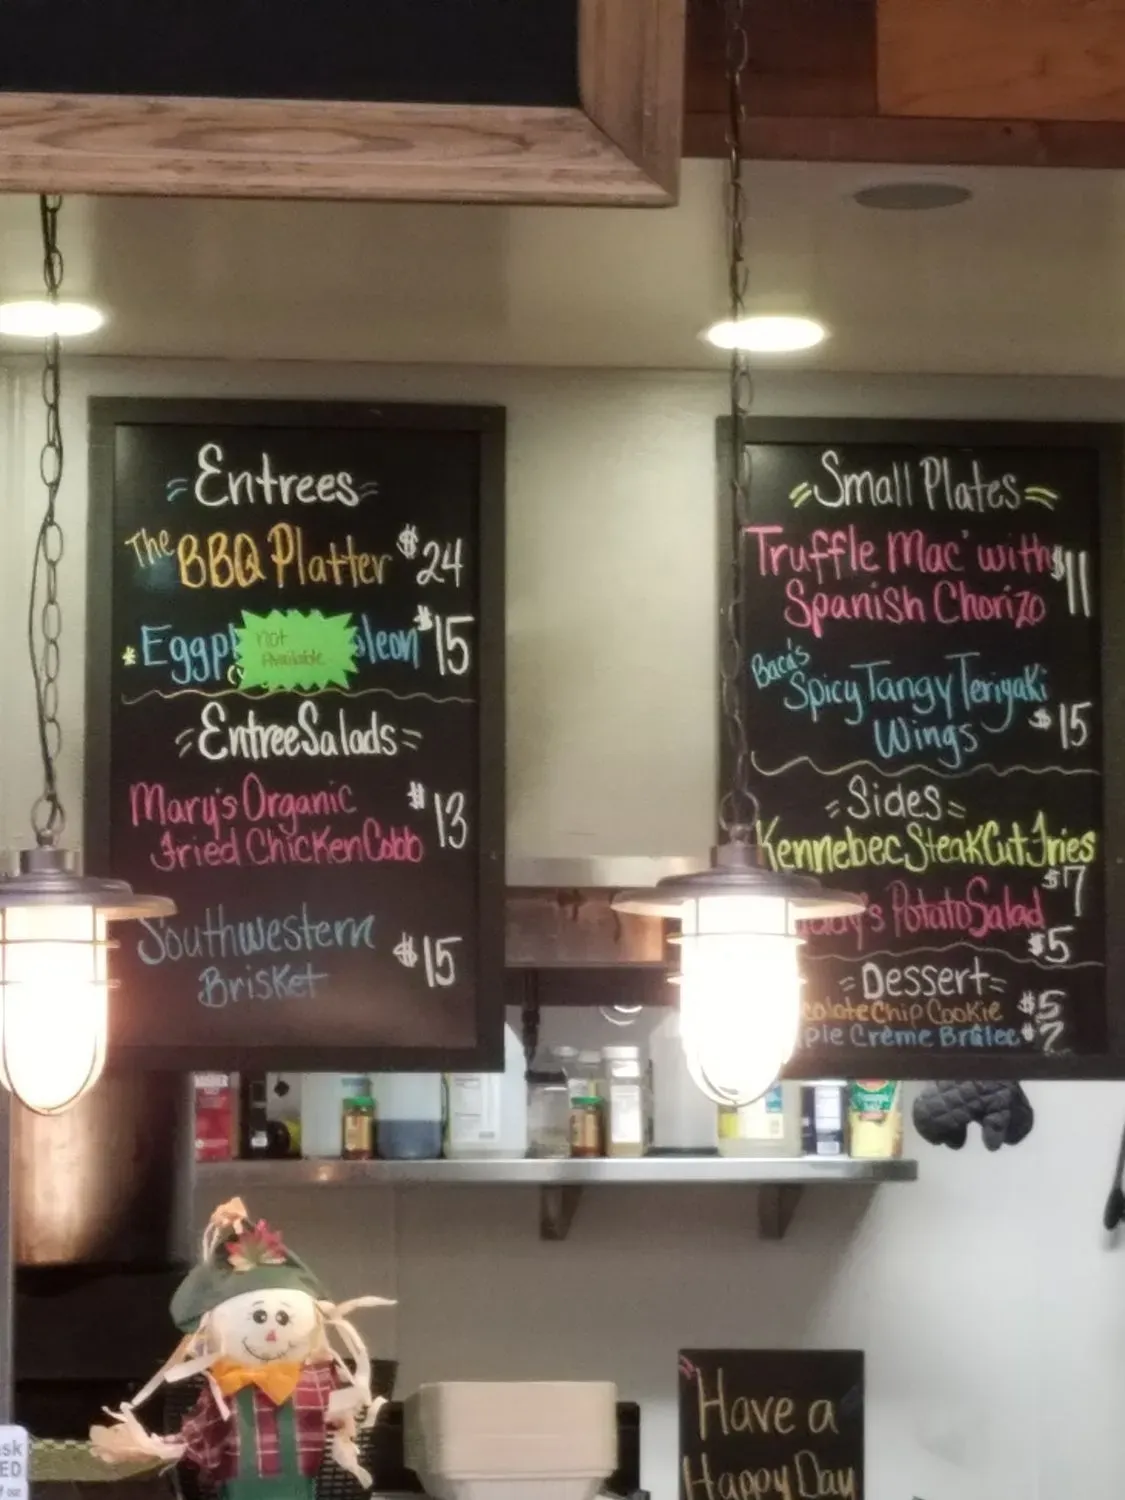 Entrees
The BBQ Platter $24
Eggpl not Available oleon $15
Entree Salads
Mary's Organic $13
Fried Chicken Cobb
Southwestern $15
Brisket
Small Plates
Truffle Mac' with $11
Spanish Chorizo
Baca's
Spicy Tangy Teriyaki
Wings $15
Sides
Kennebec Steak Cut Fries
$7
Potato Salad
$5
Dessert
Chip Cookie $5
Crème Brûlee $7
Have a
Happy Day